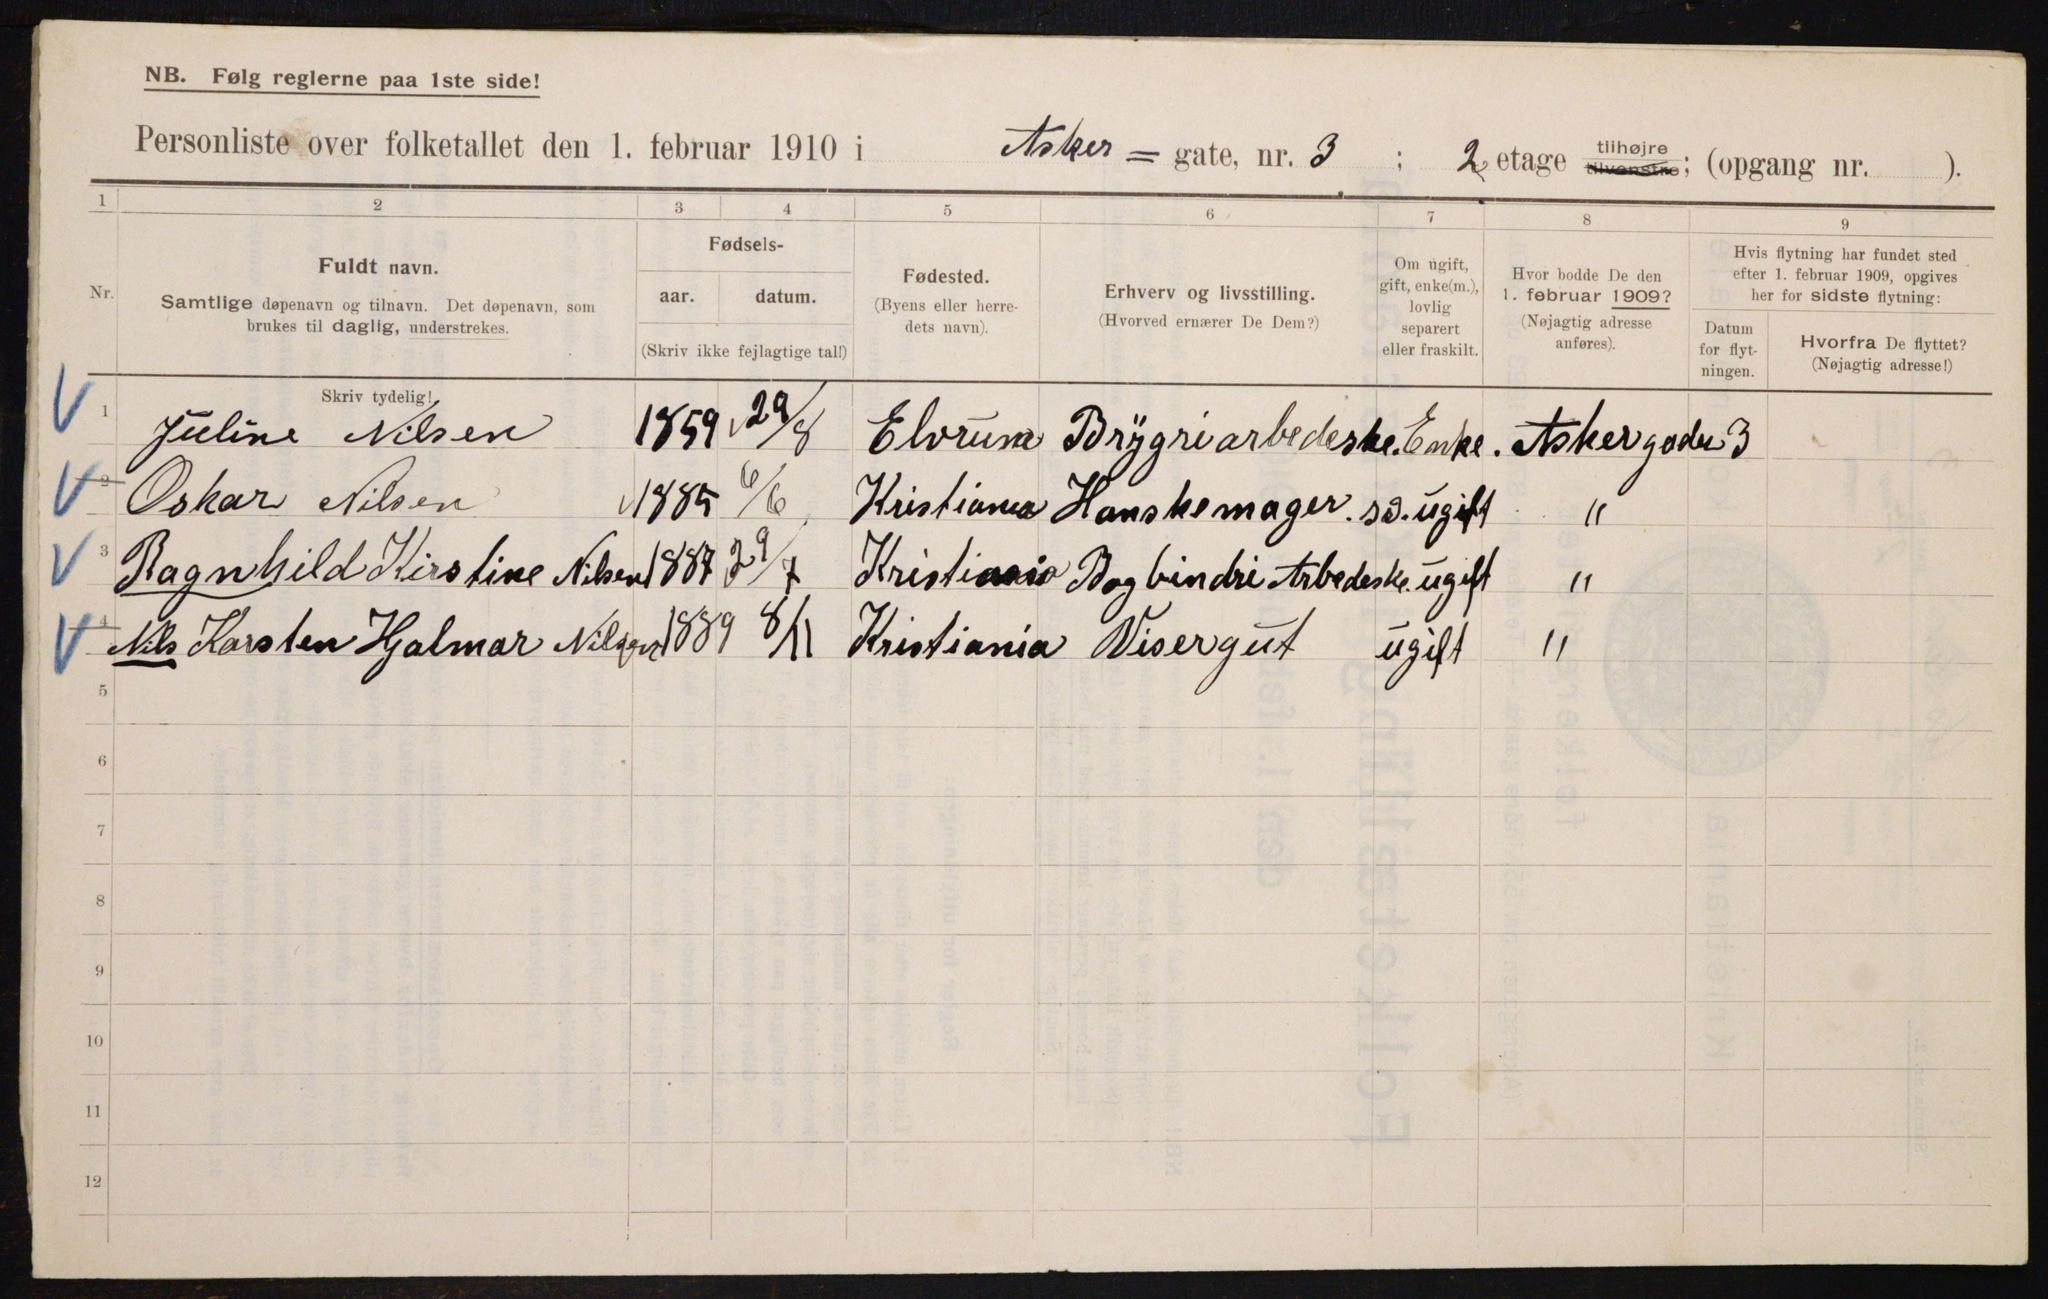 NB. Følg reglerne paa 1ste side!
Personliste over folketallet den 1. februar 1910 i Asker = gate, nr. 3 ; 2 etage tilhøjre tilvenstre; (opgang nr. ).
1 2 3 4 5 6 7 8 9
Nr.
Fuldt navn.
Samtlige døpenavn og tilnavn. Det døpenavn, som
brukes til daglig, understrekes.
Fødsels-
aar. datum.
(Skriv ikke fejlagtige tal!)
Fødested.
(Byens eller herre-
dets navn).
Erhverv og livsstilling.
(Hvorved ernærer De Dem?)
Om ugift,
gift, enke(m.),
lovlig
separert
eller fraskilt.
Hvor bodde De den
1. februar 1909?
(Nøjagtig adresse
anføres).
Hvis flytning har fundet sted
efter 1. februar 1909, opgives
her for sidste flytning:
Datum
for flyt-
ningen.
Hvorfra De flyttet?
(Nøjagtig adresse!)
Skriv tydelig!
1 Juline Nilsen 1859 29/8 Elvrum Brygriarbedeske. Enke. Askergade 3
2 Oskar Nilsen 1885 6/6 Kristiania Hanskemager. sd. ugift "
3 Ragnhild Kirstine Nilsen 1887 29/7 Kristiania Bogbindri Arbedeske. ugift "
4 Nils Karsten Hjalmar Nilsen 1889 8/11 Kristiania Visergut ugift "
5
6
7
8
9
10
11
12